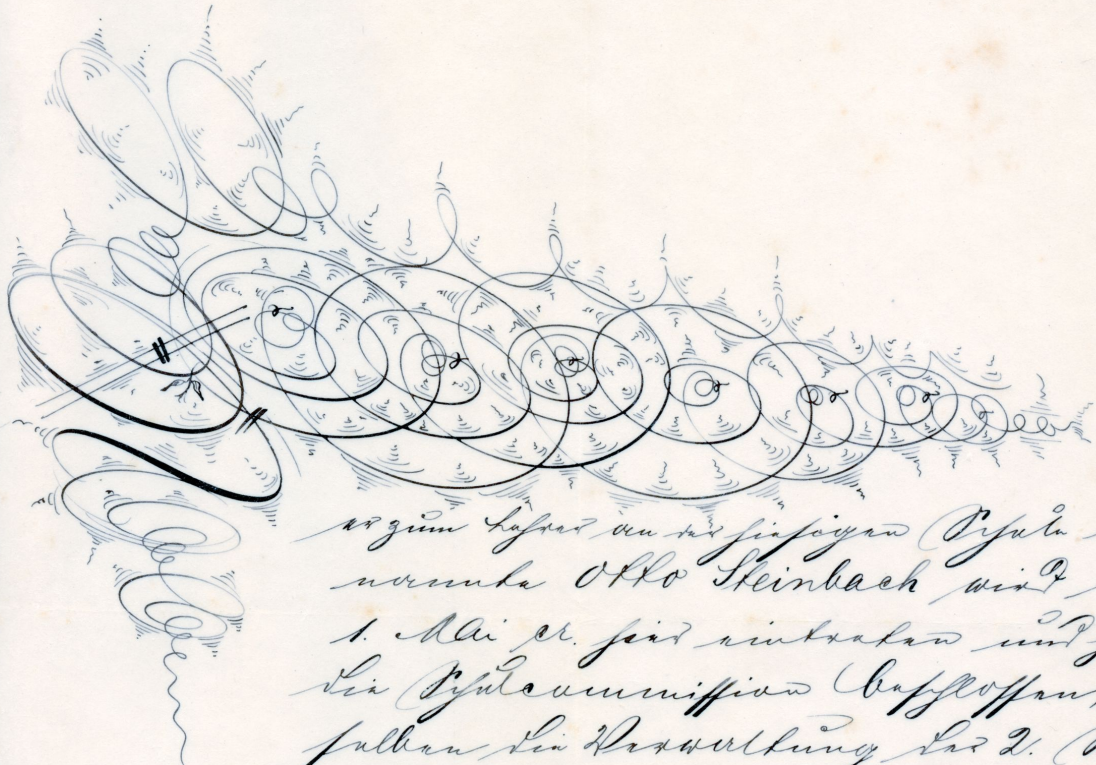 er zum Lehrer an der hiesigen Schule
nannte Otto Steinbach wird
1. Mai cr. hier eintreten und
die Schulcommission beschlossen,
selben die Verwaltung der 2.